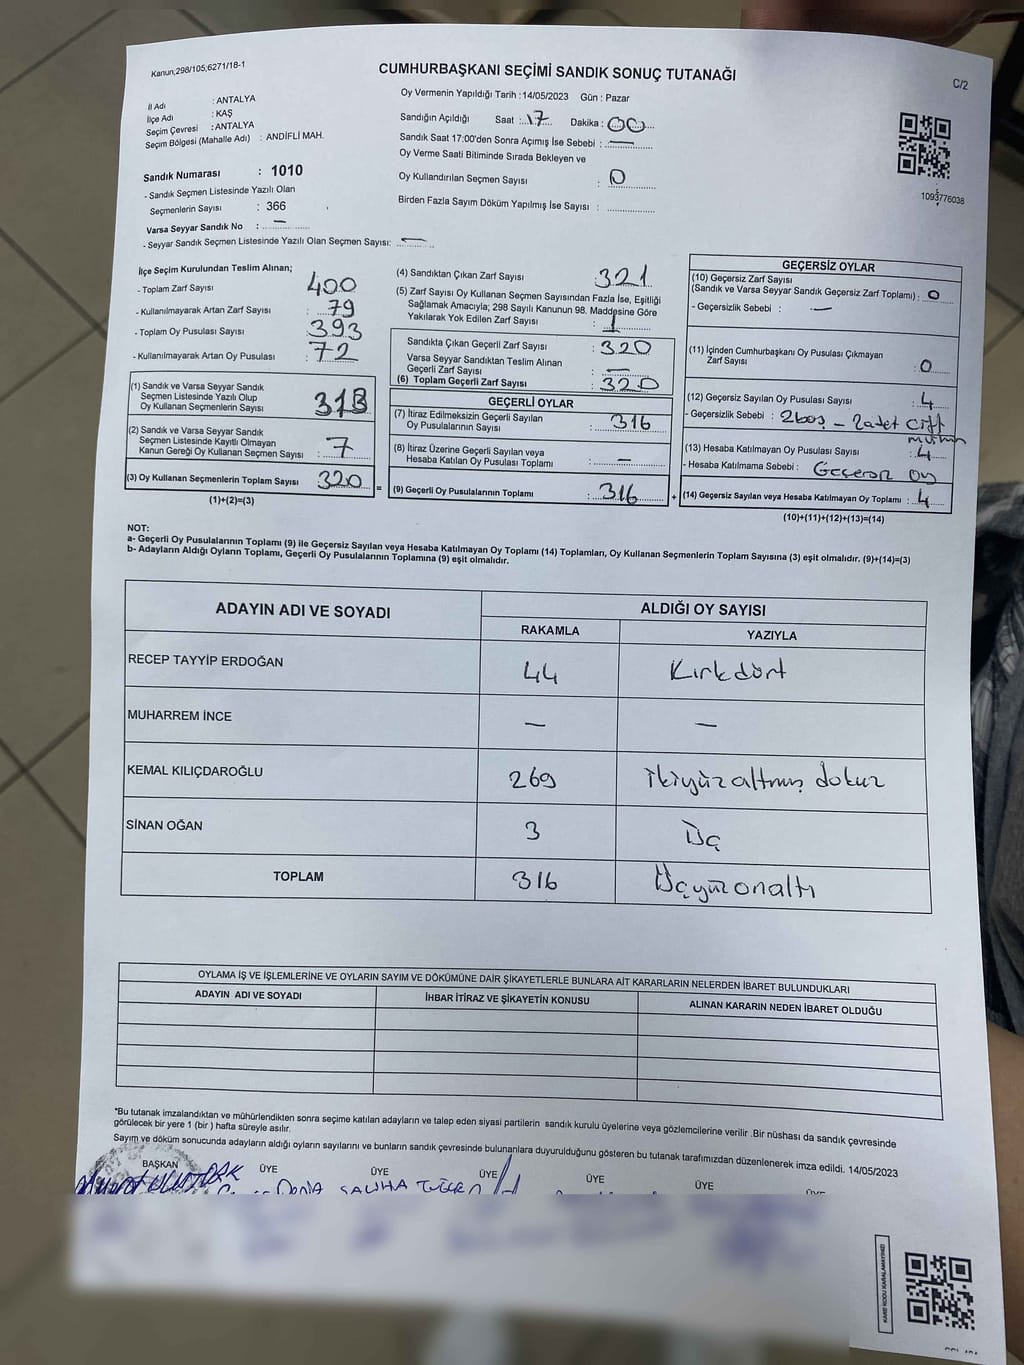 Kanun;298/105;6271/18-1
CUMHURBAŞKANI SEÇİMİ SANDIK SONUÇ TUTANAĞI
C/2
İl Adı : ANTALYA
İlçe Adı : KAŞ
Seçim Çevresi : ANTALYA
Seçim Bölgesi (Mahalle Adı) : ANDİFLİ MAH.
Sandık Numarası : 1010
- Sandık Seçmen Listesinde Yazılı Olan
Seçmenlerin Sayısı : 366
Varsa Seyyar Sandık No : —
- Seyyar Sandık Seçmen Listesinde Yazılı Olan Seçmen Sayısı: —
Oy Vermenin Yapıldığı Tarih : 14/05/2023 Gün : Pazar
Sandığın Açıldığı Saat : 17 Dakika : 00
Sandık Saat 17:00'den Sonra Açımış İse Sebebi : —
Oy Verme Saati Bitiminde Sırada Bekleyen ve
Oy Kullandırılan Seçmen Sayısı : 0
Birden Fazla Sayım Döküm Yapılmış İse Sayısı :
1093776038
İlçe Seçim Kurulundan Teslim Alınan;
- Toplam Zarf Sayısı : 400
- Kullanılmayarak Artan Zarf Sayısı : 79
- Toplam Oy Pusulası Sayısı : 393
- Kullanılmayarak Artan Oy Pusulası : 72
(1) Sandık ve Varsa Seyyar Sandık
Seçmen Listesinde Yazılı Olup
Oy Kullanan Seçmenlerin Sayısı : 313
(2) Sandık ve Varsa Seyyar Sandık
Seçmen Listesinde Kayıtlı Olmayan
Kanun Gereği Oy Kullanan Seçmen Sayısı : 7
(3) Oy Kullanan Seçmenlerin Toplam Sayısı : 320
(1)+(2)=(3)
(4) Sandıktan Çıkan Zarf Sayısı : 321
(5) Zarf Sayısı Oy Kullanan Seçmen Sayısından Fazla İse, Eşitliği
Sağlamak Amacıyla; 298 Sayılı Kanunun 98. Maddesine Göre
Yakılarak Yok Edilen Zarf Sayısı : 1
Sandıkta Çıkan Geçerli Zarf Sayısı : 320
Varsa Seyyar Sandıktan Teslim Alınan
Geçerli Zarf Sayısı : —
(6) Toplam Geçerli Zarf Sayısı : 320
GEÇERLİ OYLAR
(7) İtiraz Edilmeksizin Geçerli Sayılan
Oy Pusulalarının Sayısı : 316
(8) İtiraz Üzerine Geçerli Sayılan veya
Hesaba Katılan Oy Pusulası Toplamı : —
= (9) Geçerli Oy Pusulalarının Toplamı : 316 +
GEÇERSİZ OYLAR
(10) Geçersiz Zarf Sayısı
(Sandık ve Varsa Seyyar Sandık Geçersiz Zarf Toplamı) : 0
- Geçersizlik Sebebi : —
(11) İçinden Cumhurbaşkanı Oy Pusulası Çıkmayan
Zarf Sayısı : 0
(12) Geçersiz Sayılan Oy Pusulası Sayısı : 4
- Geçersizlik Sebebi : 2 boş - 2 adet çift
(13) Hesaba Katılmayan Oy Pusulası Sayısı : 4
- Hesaba Katılmama Sebebi : Geçersiz oy
(14) Geçersiz Sayılan veya Hesaba Katılmayan Oy Toplamı : 4
(10)+(11)+(12)+(13)=(14)
NOT:
a- Geçerli Oy Pusulalarının Toplamı (9) ile Geçersiz Sayılan veya Hesaba Katılmayan Oy Toplamı (14) Toplamları, Oy Kullanan Seçmenlerin Toplam Sayısına (3) eşit olmalıdır. (9)+(14)=(3)
b- Adayların Aldığı Oyların Toplamı, Geçerli Oy Pusulalarının Toplamına (9) eşit olmalıdır.
ADAYIN ADI VE SOYADI ALDIĞI OY SAYISI
RAKAMLA YAZIYLA
RECEP TAYYİP ERDOĞAN 44 Kırkdört
MUHARREM İNCE — —
KEMAL KILIÇDAROĞLU 269 İkiyüzaltmış dokuz
SİNAN OĞAN 3 Üç
TOPLAM 316 Üçyüzonaltı
OYLAMA İŞ VE İŞLEMLERİNE VE OYLARIN SAYIM VE DÖKÜMÜNE DAİR ŞİKAYETLERLE BUNLARA AİT KARARLARIN NELERDEN İBARET BULUNDUKLARI
ADAYIN ADI VE SOYADI İHBAR İTİRAZ VE ŞİKAYETİN KONUSU ALINAN KARARIN NEDEN İBARET OLDUĞU
*Bu tutanak imzalandıktan ve mühürlendikten sonra seçime katılan adayların ve talep eden siyasi partilerin sandık kurulu üyelerine veya gözlemcilerine verilir .Bir nüshası da sandık çevresinde
görülecek bir yere 1 (bir ) hafta süreyle asılır.
Sayım ve döküm sonucunda adayların aldığı oyların sayılarını ve bunların sandık çevresinde bulunanlara duyurulduğunu gösteren bu tutanak tarafımızdan düzenlenerek imza edildi. 14/05/2023
BAŞKAN ÜYE ÜYE ÜYE ÜYE ÜYE ÜYE
Deniz SALİHA
KARE KODU KARALAMAYINIZ!